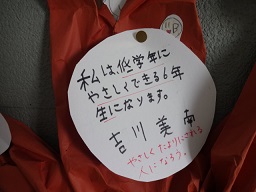 私は、低学年に
やさしくできる6年
生になります。
吉川美南
やさしくたよりにされる
人になろう。